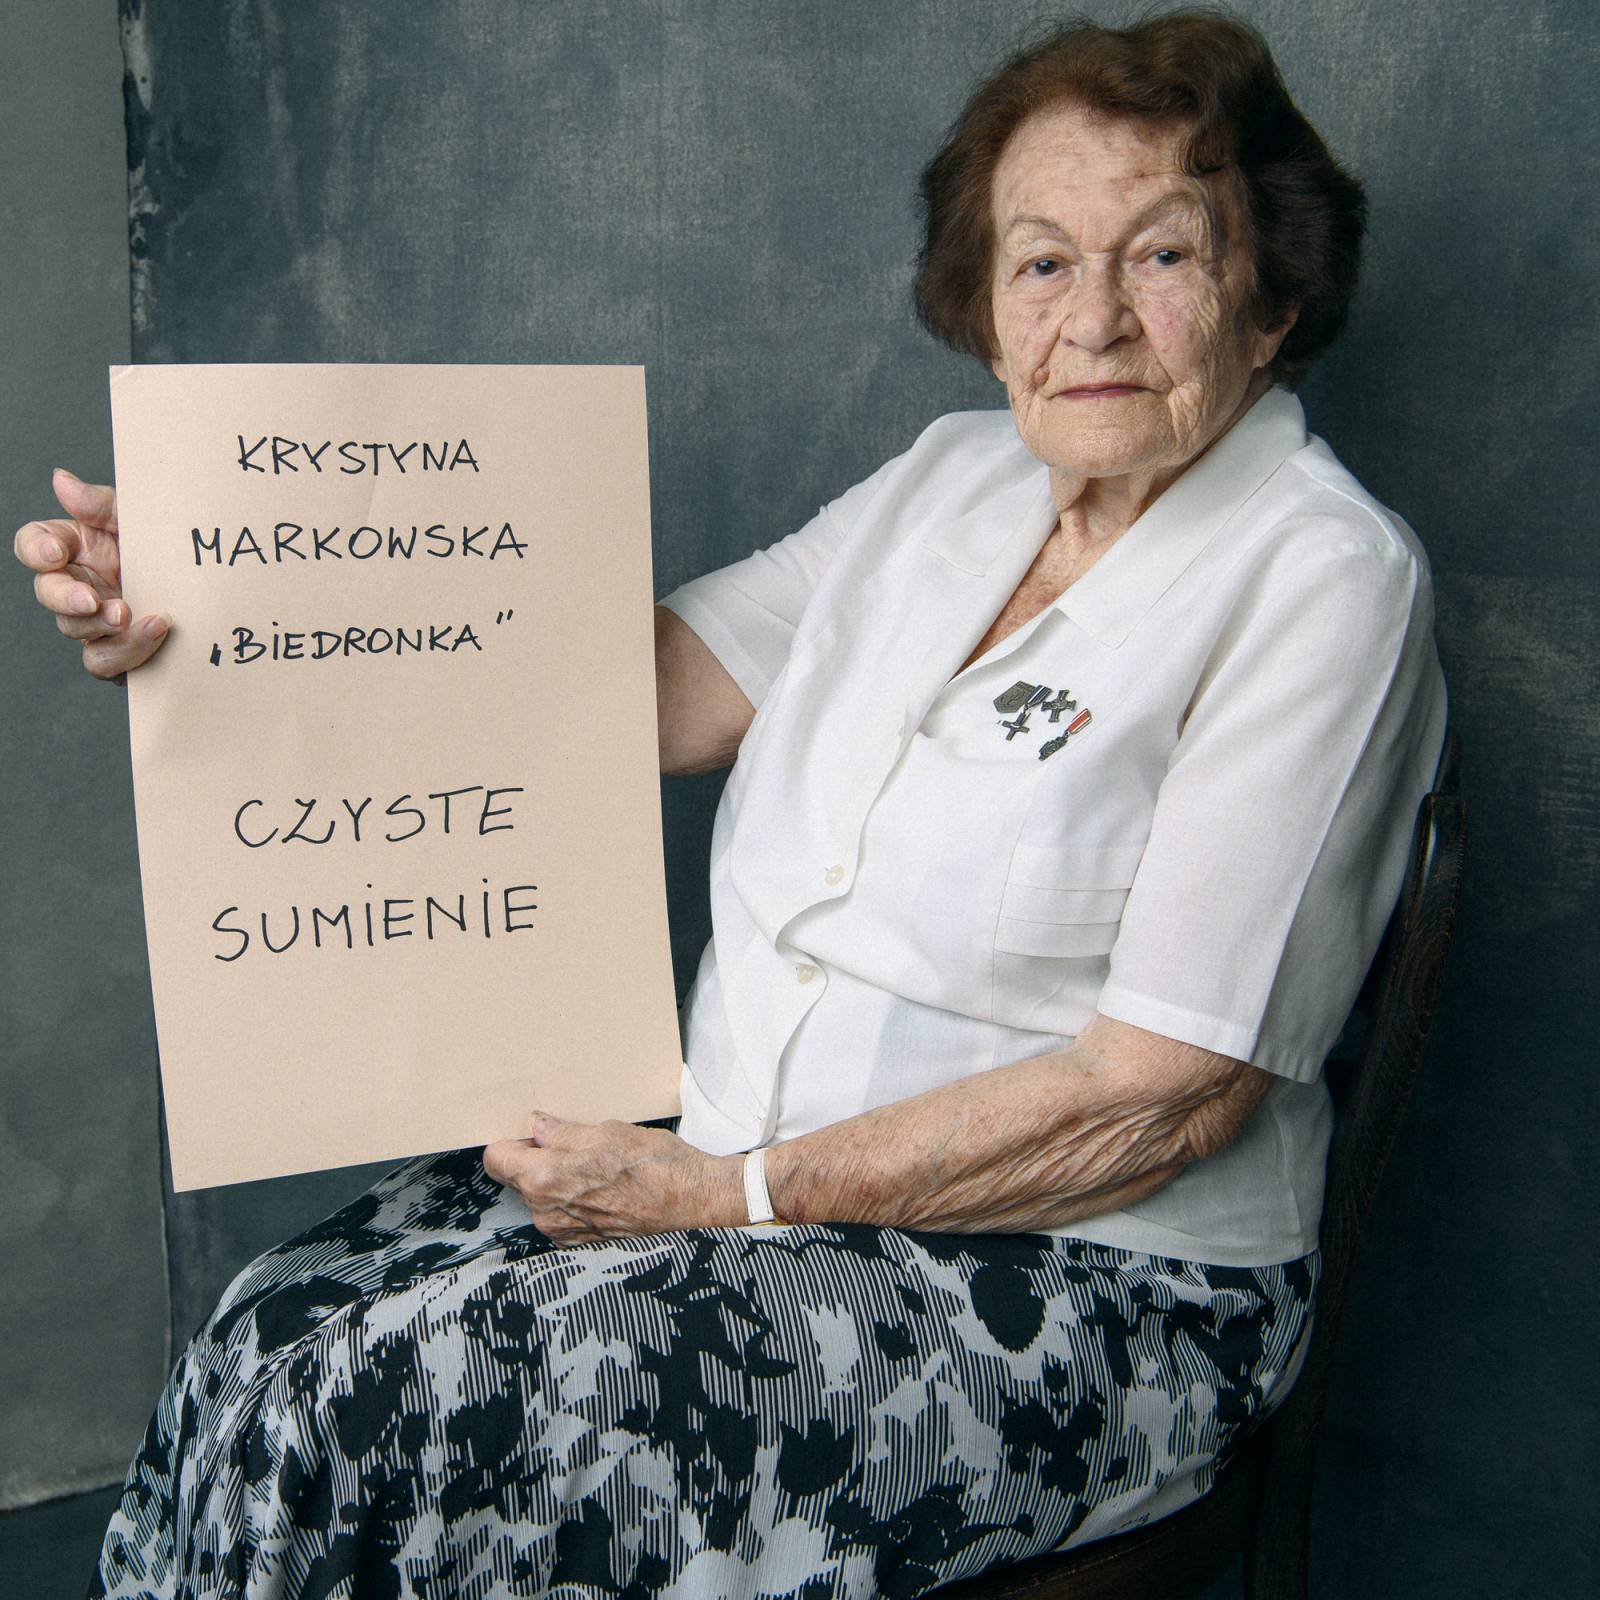 KRYSTYNA
MARKOWSKA
„BIEDRONKA”
CZYSTE
SUMIENIE